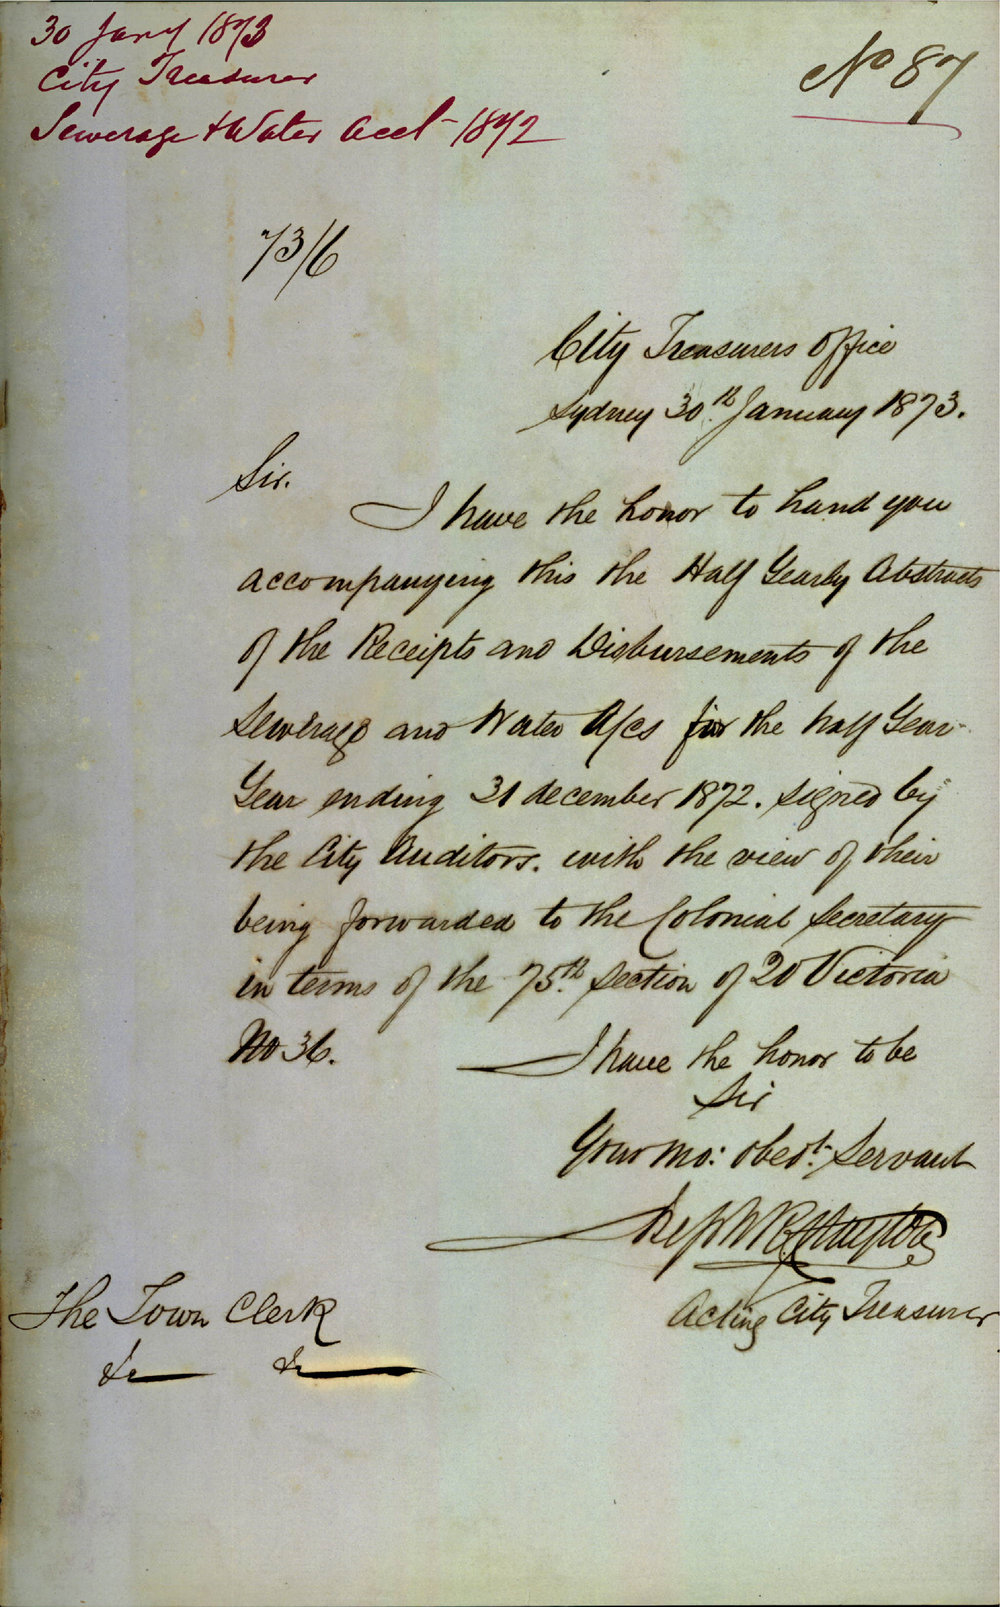 30 Jany 1873
City Treasurer
Sewerage & Water Acct 1872
No 87
73/6
City Treasurers Office
Sydney 30th January 1873.
Sir.
I have the honor to hand you
accompanying this the Half Yearly Abstracts
of the Receipts and Disbursements of the
Sewerage and Water A/cs for the half Year
Year ending 31 december 1872. signed by
the City Auditors. with the view of their
being forwarded to the Colonial Secretary
in terms of the 75th section of 20 Victoria
No 36.
I have the honor to be
Sir
Your mo: obedt. Servant
Acting City Treasurer
The Town Clerk
&c &c